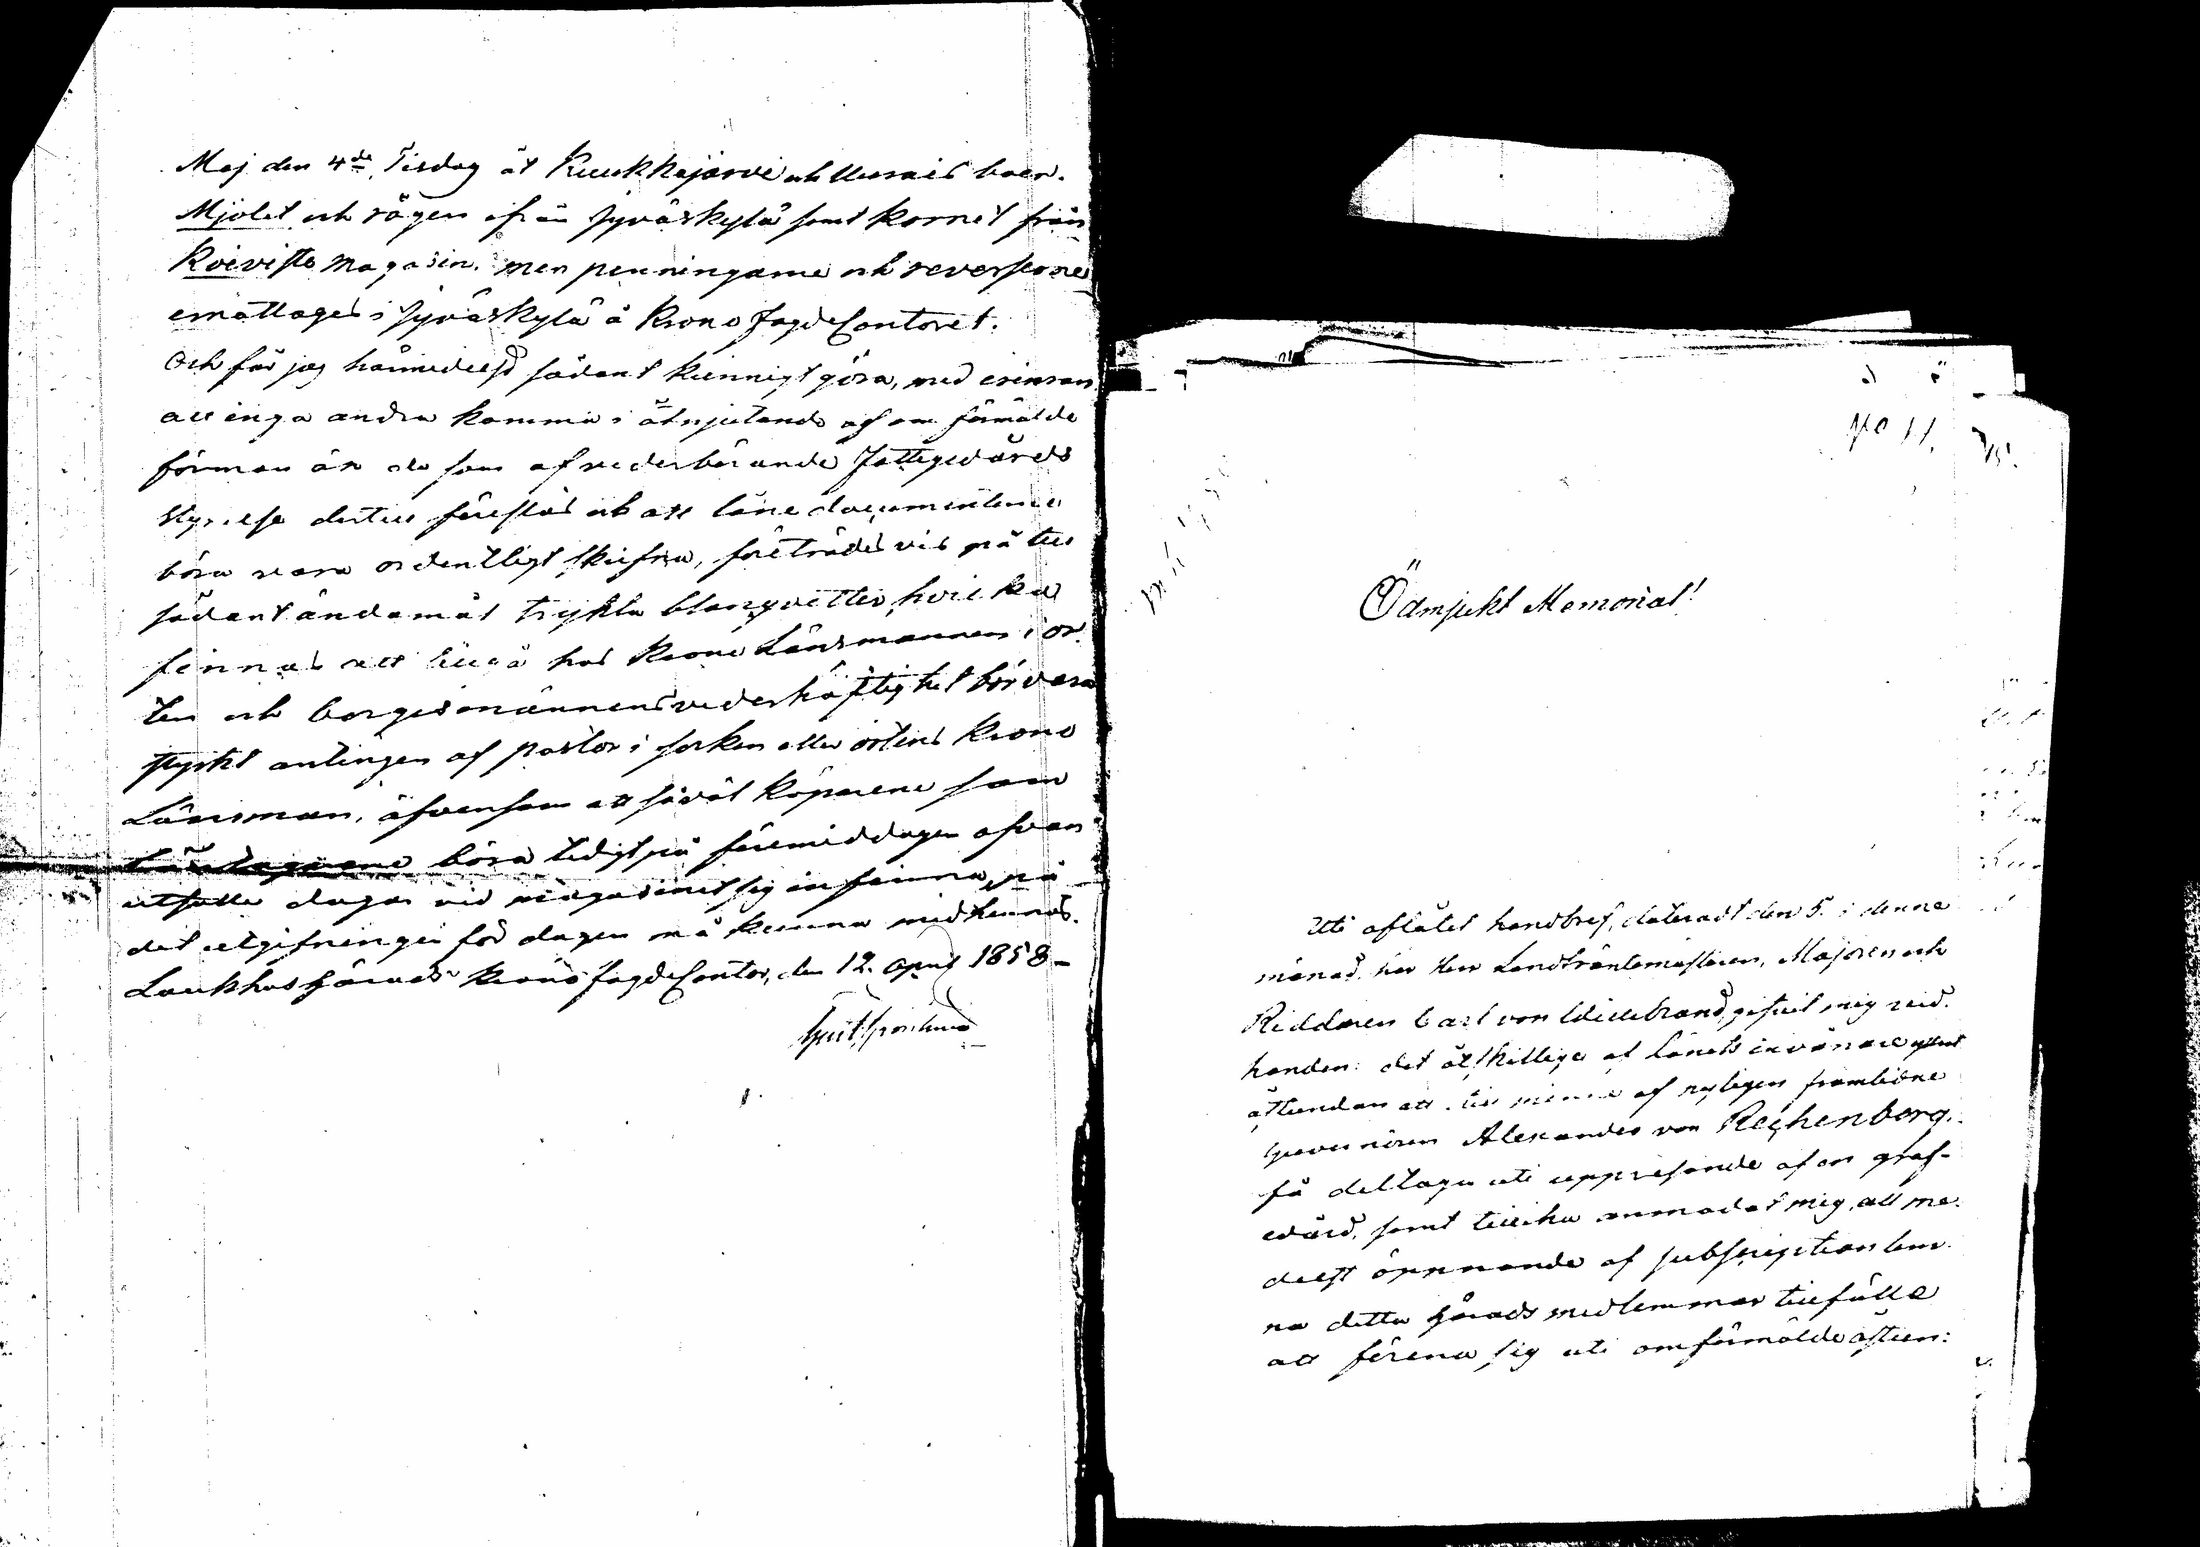 Maj den 4de Tisdag åt Kuukkajärvi och Uurais boer.
Mjölet och rågen ifrån Jyväskylä samt kornet från
Koivisto Magasin, men penningarne och reverserne
emottages i Jyväskylä å Krono Fogde Contoret.
Och får jag härmedelst sådant kunnigt göra, med erinran
att inga andra komma i åtnjutande af omförmälde
förmon än de som af vederbörande Fattigvårds
styrelse dertill föreslås och att låne documenterne
böra vara ordentligt skrifna, företrädesvis på till
sådant ändamål tryckta blanquetter, hvilka
finnas att tillgå hos Krono Länsmannen i or-
ten och borgesmännens vederhäftighet bör vara
styrkt antingen af pastor i socken eller ortens Krono
Länsman, äfvensom att såväl köparene som
låntagarene böra tidigt på förmiddagen ofvan
utsatte dagar vid magasinet sig infinna, på
det utgifningen för dagen må kunna medhinnas.
Laukkas Härads Krono Fogde Contor, den 12 April 1858
No 11.
Ödmjukt Memorial!
Uti aflåtet handbref, dateradt den 5. i denne
månad, har Herr Landträntemästaren, Majoren och
Riddaren Carl von Willebrand, gifvit mig vid
handen: det åtskillige af länets invånare yttrat
åstundan att till minne af nyligen framlidne
Guvernören Alexander von Rechenberg,
få deltaga uti uppresande af en graf-
vård, samt tillika anmodat mig, att me-
delst öppnande af subscription lem-
na detta Härads medlemmar tillfälle
att förena sig uti omförmälde åstun-